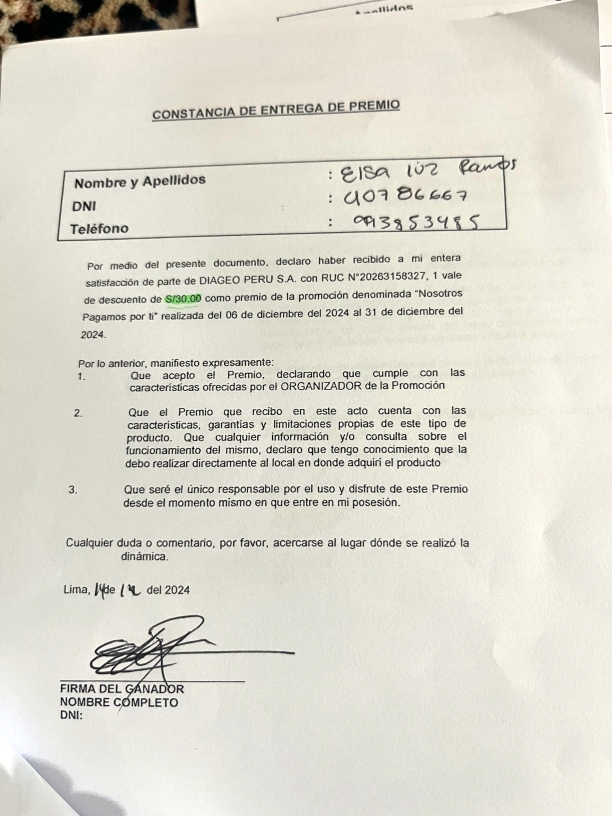 Apellidos
CONSTANCIA DE ENTREGA DE PREMIO
Nombre y Apellidos : Elsa luz Ramos
DNI : 40786667
Teléfono : 993853485
Por medio del presente documento, declaro haber recibido a mi entera
satisfacción de parte de DIAGEO PERU S.A. con RUC N°20263158327, 1 vale
de descuento de S/30.00 como premio de la promoción denominada "Nosotros
Pagamos por ti" realizada del 06 de diciembre del 2024 al 31 de diciembre del
2024.
Por lo anterior, manifiesto expresamente:
1. Que acepto el Premio, declarando que cumple con las
características ofrecidas por el ORGANIZADOR de la Promoción
2. Que el Premio que recibo en este acto cuenta con las
características, garantías y limitaciones propias de este tipo de
producto. Que cualquier información y/o consulta sobre el
funcionamiento del mismo, declaro que tengo conocimiento que la
debo realizar directamente al local en donde adquirí el producto
3. Que seré el único responsable por el uso y disfrute de este Premio
desde el momento mismo en que entre en mi posesión.
Cualquier duda o comentario, por favor, acercarse al lugar dónde se realizó la
dinámica.
Lima, 14 de 12 del 2024
FIRMA DEL GANADOR
NOMBRE COMPLETO
DNI: